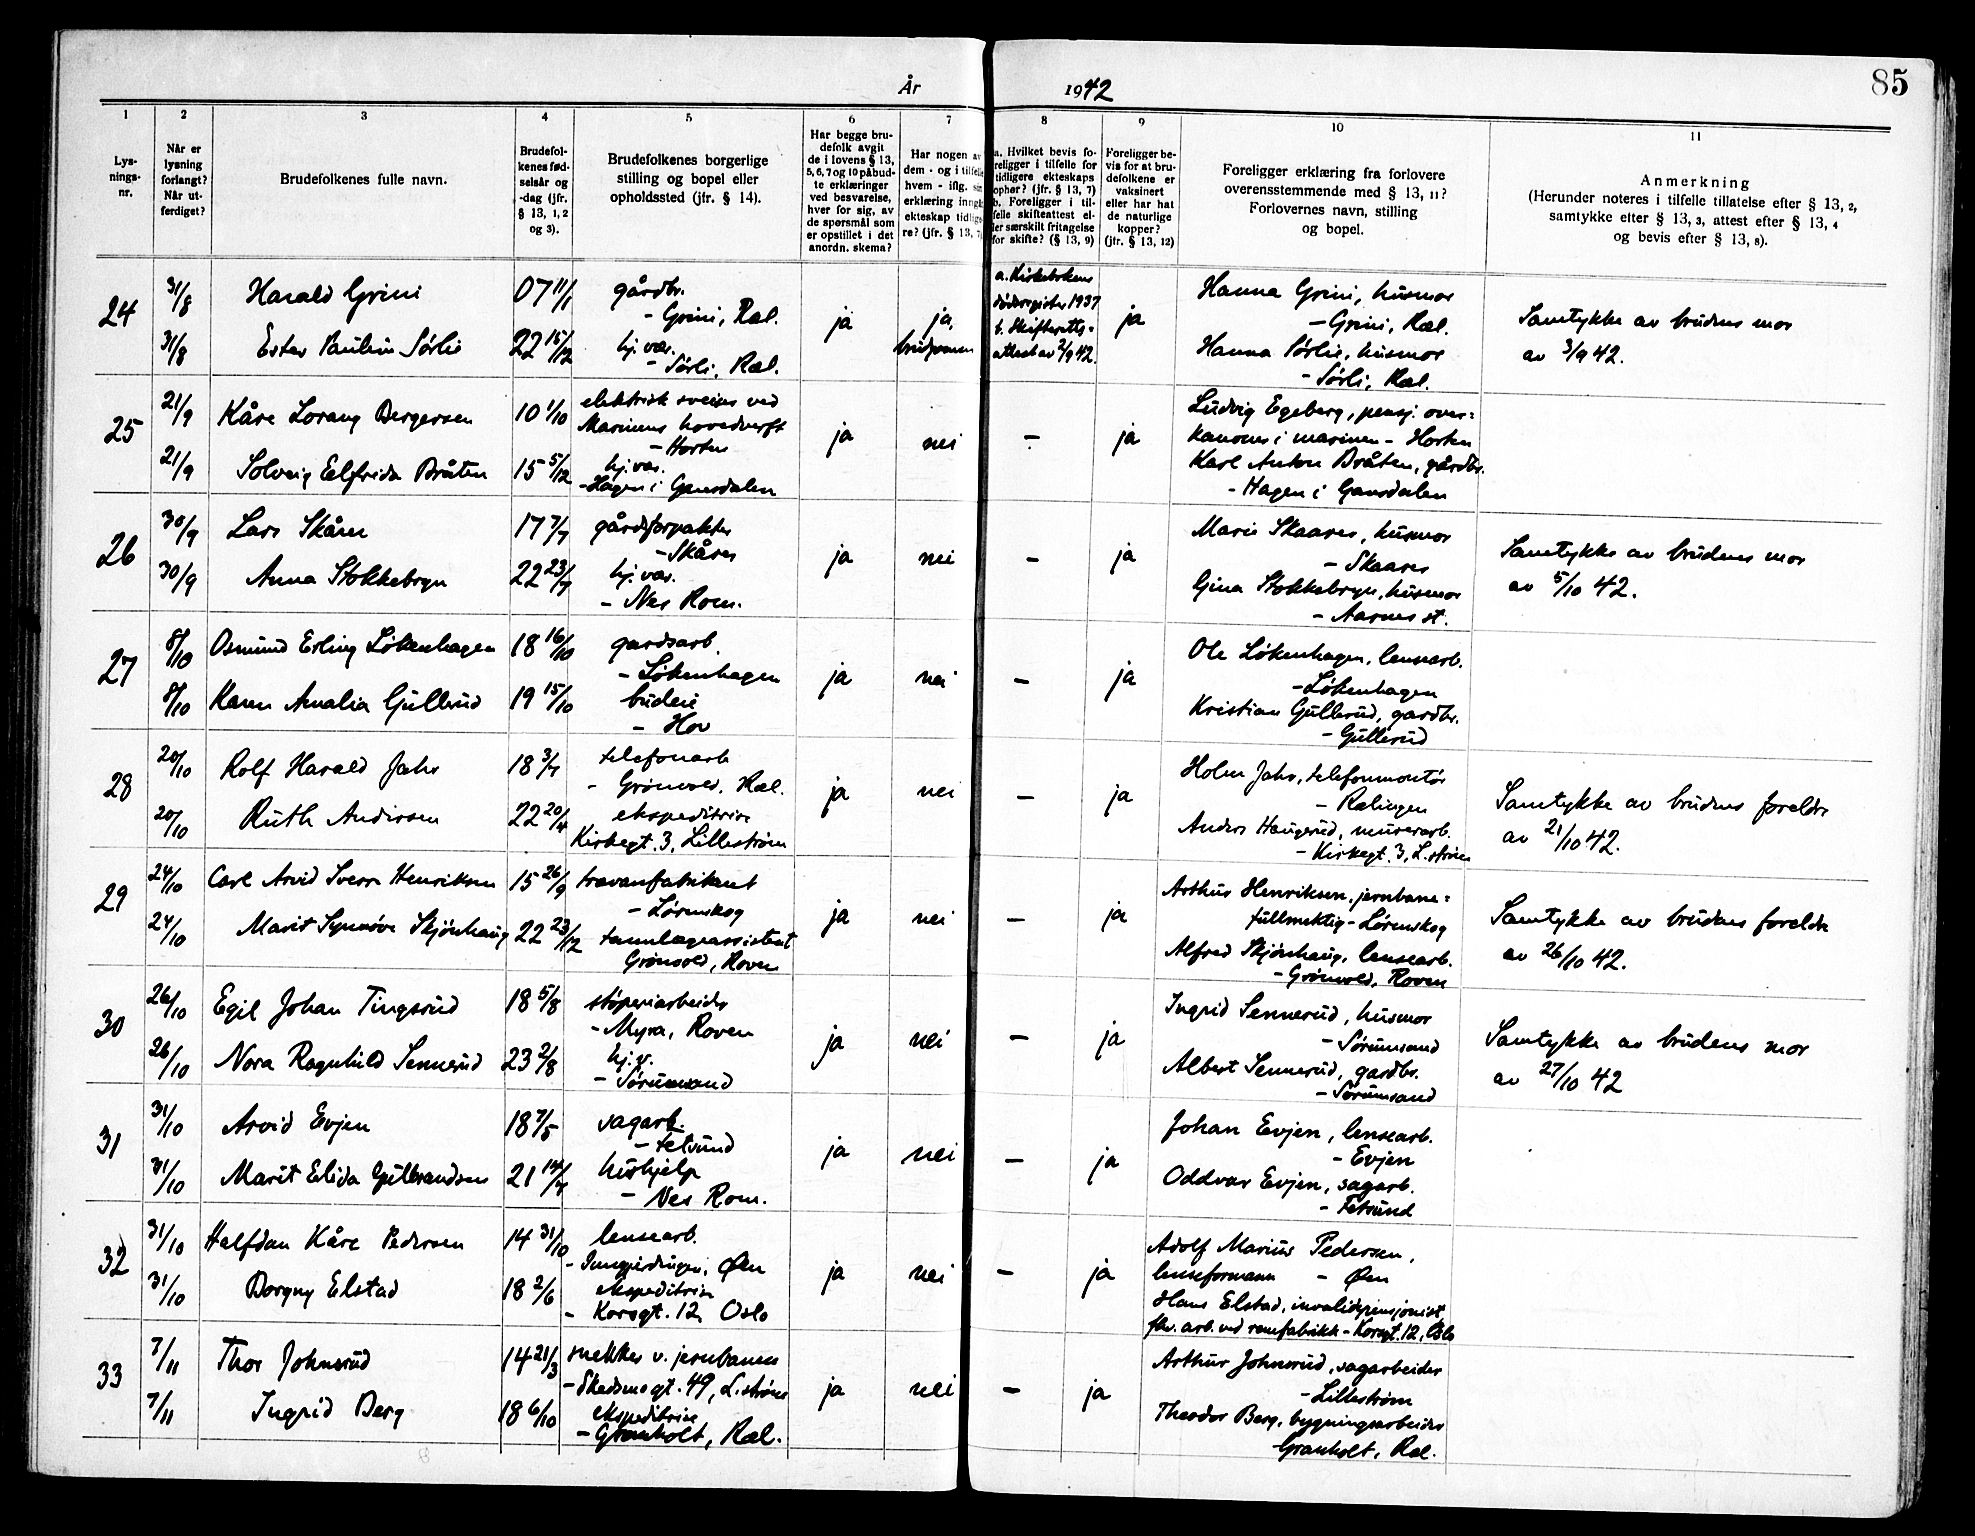 85
År 1942
1 2 3 4 5 6 7 8 9 10 11
Lys-
nings-
nr.
Når er
lysning
forlangt?
Når ut-
ferdiget?
Brudefolkenes fulle navn.
Brudefol-
kenes fød-
selsår og
-dag (jfr.
§ 13, 1, 2
og 3).
Brudefolkenes borgerlige
stilling og bopel eller
opholdssted (jfr. § 14).
Har begge bru-
defolk avgit
de i lovens § 13,
5, 6, 7 og 10 påbud-
te erklæringer
ved besvarelse,
hver for sig, av
de spørsmål som
er opstillet i det
anordn. skema?
Har nogen av
dem - og i tilfelle
hvem - iflg. sin
erklæring inngått
ekteskap tidlige-
re? (jfr. § 13, 7)
a. Hvilket bevis fo-
religger i tilfelle for
tidligere ekteskaps
ophør? (jfr. § 13, 7)
b. Foreligger i til-
felle skifteattest el-
ler særskilt fritagelse
for skifte? (§ 13, 9)
Foreligger be-
vis for at bru-
defolkene er
vaksinert
eller har hat
de naturlige
kopper?
(jfr. § 13, 12)
Foreligger erklæring fra forlovere
overensstemmende med § 13, 11?
Forlovernes navn, stilling
og bopel.
Anmerkning
(Herunder noteres i tilfelle tillatelse efter § 13, 2,
samtykke efter § 13, 3, attest efter § 13, 4
og bevis efter § 13, 8).
24
31/8 Harald Grini 07 11/1 gårdbr.
- Grini, Ræl.
31/8 Ester Paulin Sørlie 22 15/12 hj.vær.
- Sørli, Ræl.
ja
ja,
brudgommen
a. Kirkebokens
dødsregister 1937
b. Skifteretts-
attest av 2/9 42.
ja
Hanna Grini, husmor
- Grini, Ræl.
Hanna Sørlie, husmor
- Sørli, Ræl.
Samtykke av brudens mor
av 3/9 42.
25
21/9 Kåre Lorang Bergersen 10 1/10 elektrisk sveiser ved
Marinens hovedverft
- Horten
21/9 Solveig Elfrida Bråten 15 5/12 hj.vær.
- Hagen i Gansdalen
ja nei - ja
Ludvig Egeberg, pensj. over-
kanoner i marinen - Horten
Karl Anton Bråten, gårdbr.
- Hagen i Gansdalen
26
30/9 Lars Skåren 17 7/7 gårdsforpakter
- Skåres
30/9 Anna Stokkebryn 22 23/7 hj.vær.
- Nes Rom.
ja nei - ja
Marie Skaares, husmor
- Skaares
Gina Stokkebryn, husmor
- Aarnes st.
Samtykke av brudens mor
av 5/10 42.
27
8/10 Osmund Erling Løkenhagen 18 16/10 gardsarb.
- Løkenhagen
8/10 Karen Amalia Gullerud 19 15/10 budeie
- Hov
ja nei - ja
Ole Løkenhagen, lensearb.
- Løkenhagen
Kristian Gullerud, gardbr.
- Gullerud
28
20/10 Rolf Harald Jahr 18 3/7 telefonarb
- Grønvold, Ræl.
20/10 Ruth Andersen 22 20/4 ekspeditrise
Kirkegt. 3, Lillestrøm
ja nei - ja
Holm Jahr, telefonmontør
- Rælingen
Anders Haugerud, murerarb.
- Kirkegt. 3, L.strøm
Samtykke av brudens foreldre
av 21/10 42.
29
24/10 Carl Arvid Sverre Henriksen 15 26/9 travarefabrikant
- Lørenskog
24/10 Marit Synnøve Skjønhaug 22 23/12 tannlegeassistent
Grønvold, Roven
ja nei - ja
Arthur Henriksen, jernbane-
fullmektig - Lørenskog
Alfred Skjønhaug, lensearb.
- Grønvold, Roven
Samtykke av brudens foreldre
av 26/10 42.
30
26/10 Egil Johan Tingsrud 18 5/8 støperiarbeider
- Myra, Roven
26/10 Nora Ragnhild Sennerud 23 2/8 hj.v.
- Sørumsand
ja nei - ja
Ingrid Sennerud, husmor
- Sørumsand
Albert Sennerud, gardbr.
- Sørumsand
Samtykke av brudens mor
av 27/10 42
31
31/10 Arvid Evjen 18 7/5 sagarb.
- Fetsund
31/10 Marit Elida Gulbrandsen 21 14/7 hushjelp
- Nes Rom.
ja nei - ja
Johan Evjen, lensearb.
- Evjen
Oddvar Evjen, sagarb.
- Fetsund
32
31/10 Halfdan Kåre Pedersen 14 31/10 lensearb.
- Øen
31/10 Borgny Elstad 18 2/6 ekspeditrise
- Korsgt. 12, Oslo
ja nei - ja
Adolf Marius Pedersen,
lenseformann - Øen
Hans Elstad, invalidpensjonist
fhv. arb. ved - Korsgt. 12, Oslo
33
7/11 Thor Johnsrud 14 21/3 snekker v. jernbanen
- Skedsmogt. 49, L.strøm
7/11 Ingrid Berg 18 6/10 ekspeditrise
- Granholt, Ræl.
ja nei - ja
Arthur Johnsrud, sagarbeider
- Lillestrøm
Theodor Berg, bygningsarbeider
Granholt, Ræl.